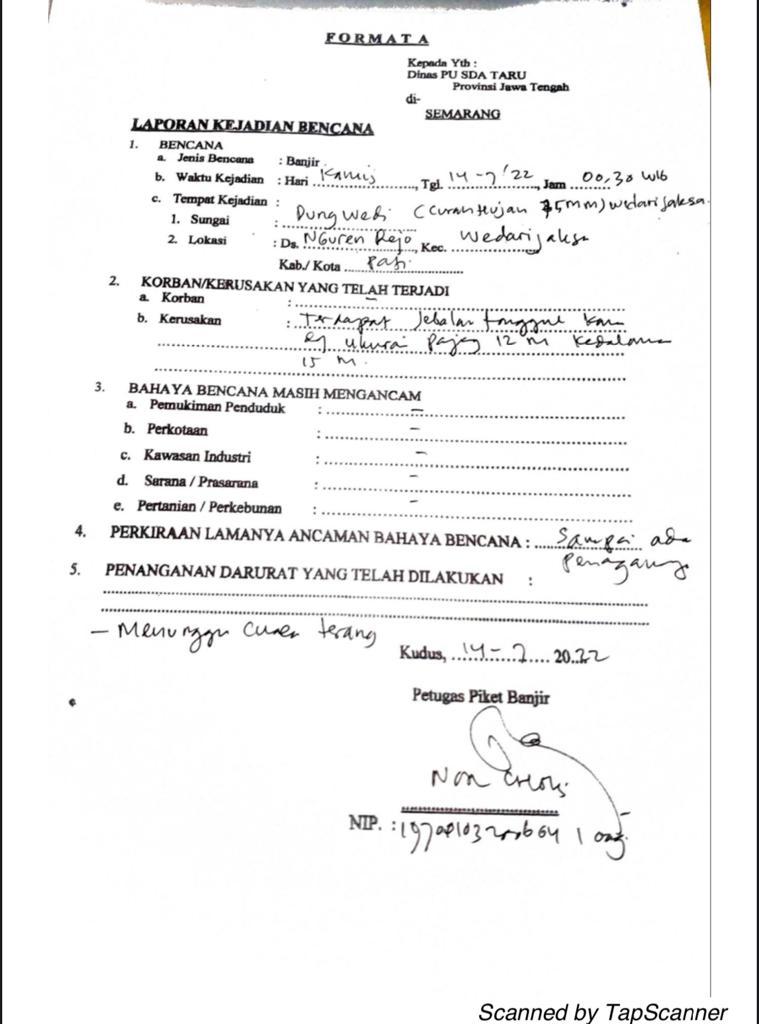 FORMAT A
Kepada Yth :
Dinas PU SDA TARU
Provinsi Jawa Tengah
di-
SEMARANG
LAPORAN KEJADIAN BENCANA
1. BENCANA
a. Jenis Bencana : Banjir
b. Waktu Kejadian : Hari Kamis, Tgl. 14-7'22, Jam 00,30 WIB
c. Tempat Kejadian :
1. Sungai : Dungwedi (Curah Hujan 75MM) wedarijaksa
2. Lokasi : Ds. Nguren Rejo, Kec. Wedarijaksa
Kab./ Kota Pati
2. KORBAN/KERUSAKAN YANG TELAH TERJADI
a. Korban : -
b. Kerusakan : Terdapat tanggul
12 m
15 m.
3. BAHAYA BENCANA MASIH MENGANCAM
a. Pemukiman Penduduk : -
b. Perkotaan : -
c. Kawasan Industri : -
d. Sarana / Prasarana : -
e. Pertanian / Perkebunan : -
4. PERKIRAAN LAMANYA ANCAMAN BAHAYA BENCANA : Sampai ada
5. PENANGANAN DARURAT YANG TELAH DILAKUKAN :
- Menunggu Cuaca terang
Kudus, 14-7 2022
Petugas Piket Banjir
NIP. :
Scanned by TapScanner